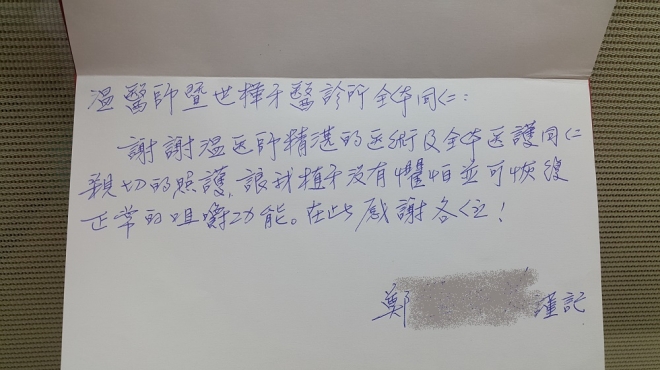 温醫師暨世樺牙醫診所全体同仁：
謝謝温医師精湛的医術及全体医護同仁
親切的照護，讓我植牙没有懼怕並可恢復
正常的咀嚼功能。在此感謝各位！
鄭 謹記